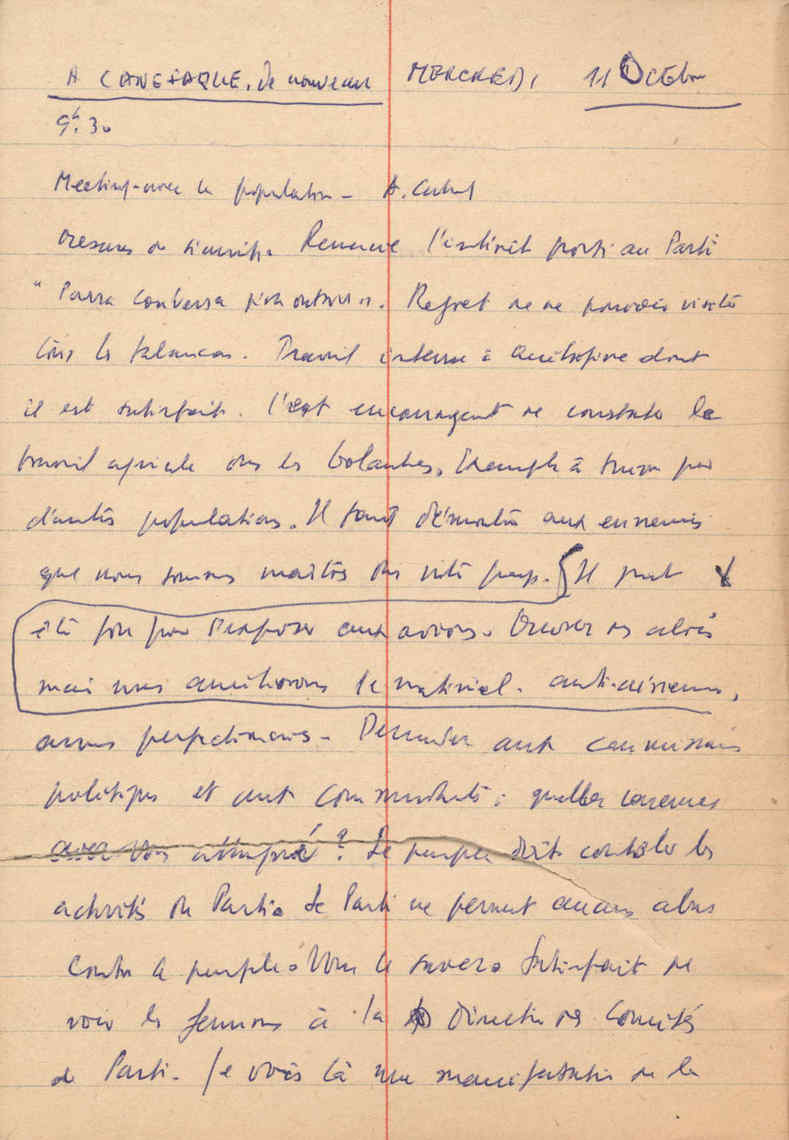 A CANEFAQUE, de nouveau MERCREDI 11 OCTobre
9h.30
Meeting avec la population - A. Cabral
mesures de . Remercie l'intérêt porté au Parti
" . Regret de ne pouvoir visiter
tous les tabancas. Travail intense à Quitafine dont
il est satisfait. C'est encourageant de constater le
travail agricole des les Balantes. Exemple à suivre par
d'autres populations. Il faut démontrer aux ennemis
que nous sommes maîtres de notre pays. Il peut
être fou pour s'exposer aux avions. Creuser des abris
mais nous améliorons le matériel. anti-aériens,
armes perfectionnées - Demander aux commissaires
politiques et aux commandants : quelles casernes
avez vous attaqué ? Le peuple doit contrôler les
activités du Parti. Le Parti ne permet aucun abus
contre le peuple. Vous le savez. Satisfait de
voir les femmes à la Direction des Comités
de Parti. Je vois là une manifestation de la